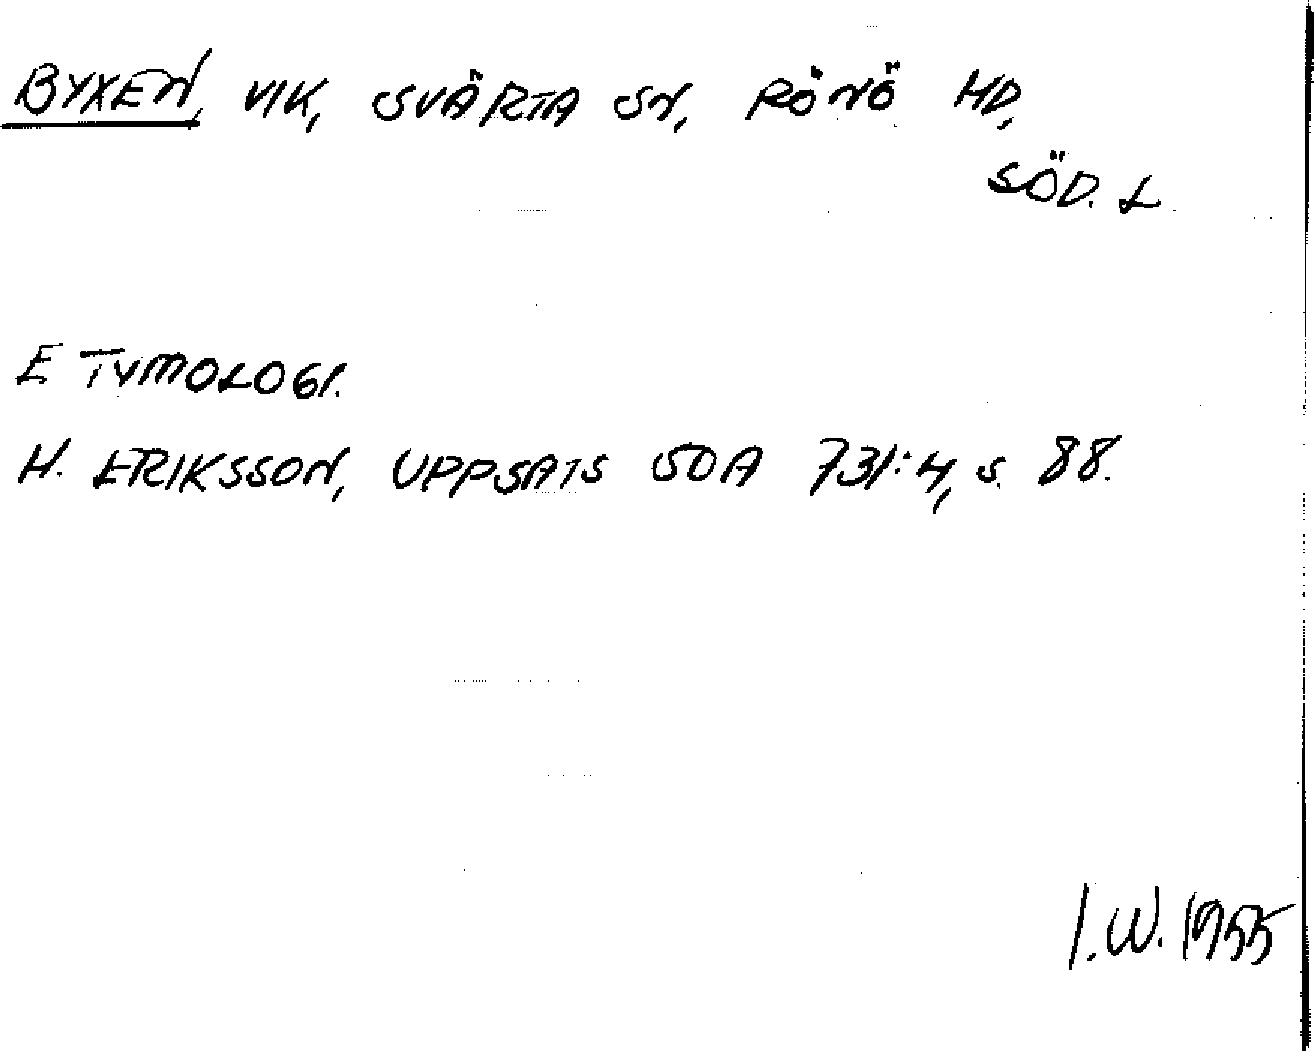 BYXEN, VIK, SVÄRTA SN, RÖNÖ HD,
SÖD. L
ETYMOLOGI.
H. ERIKSSON, UPPSATS SOA 731:4, S. 88.
I.W. 1955